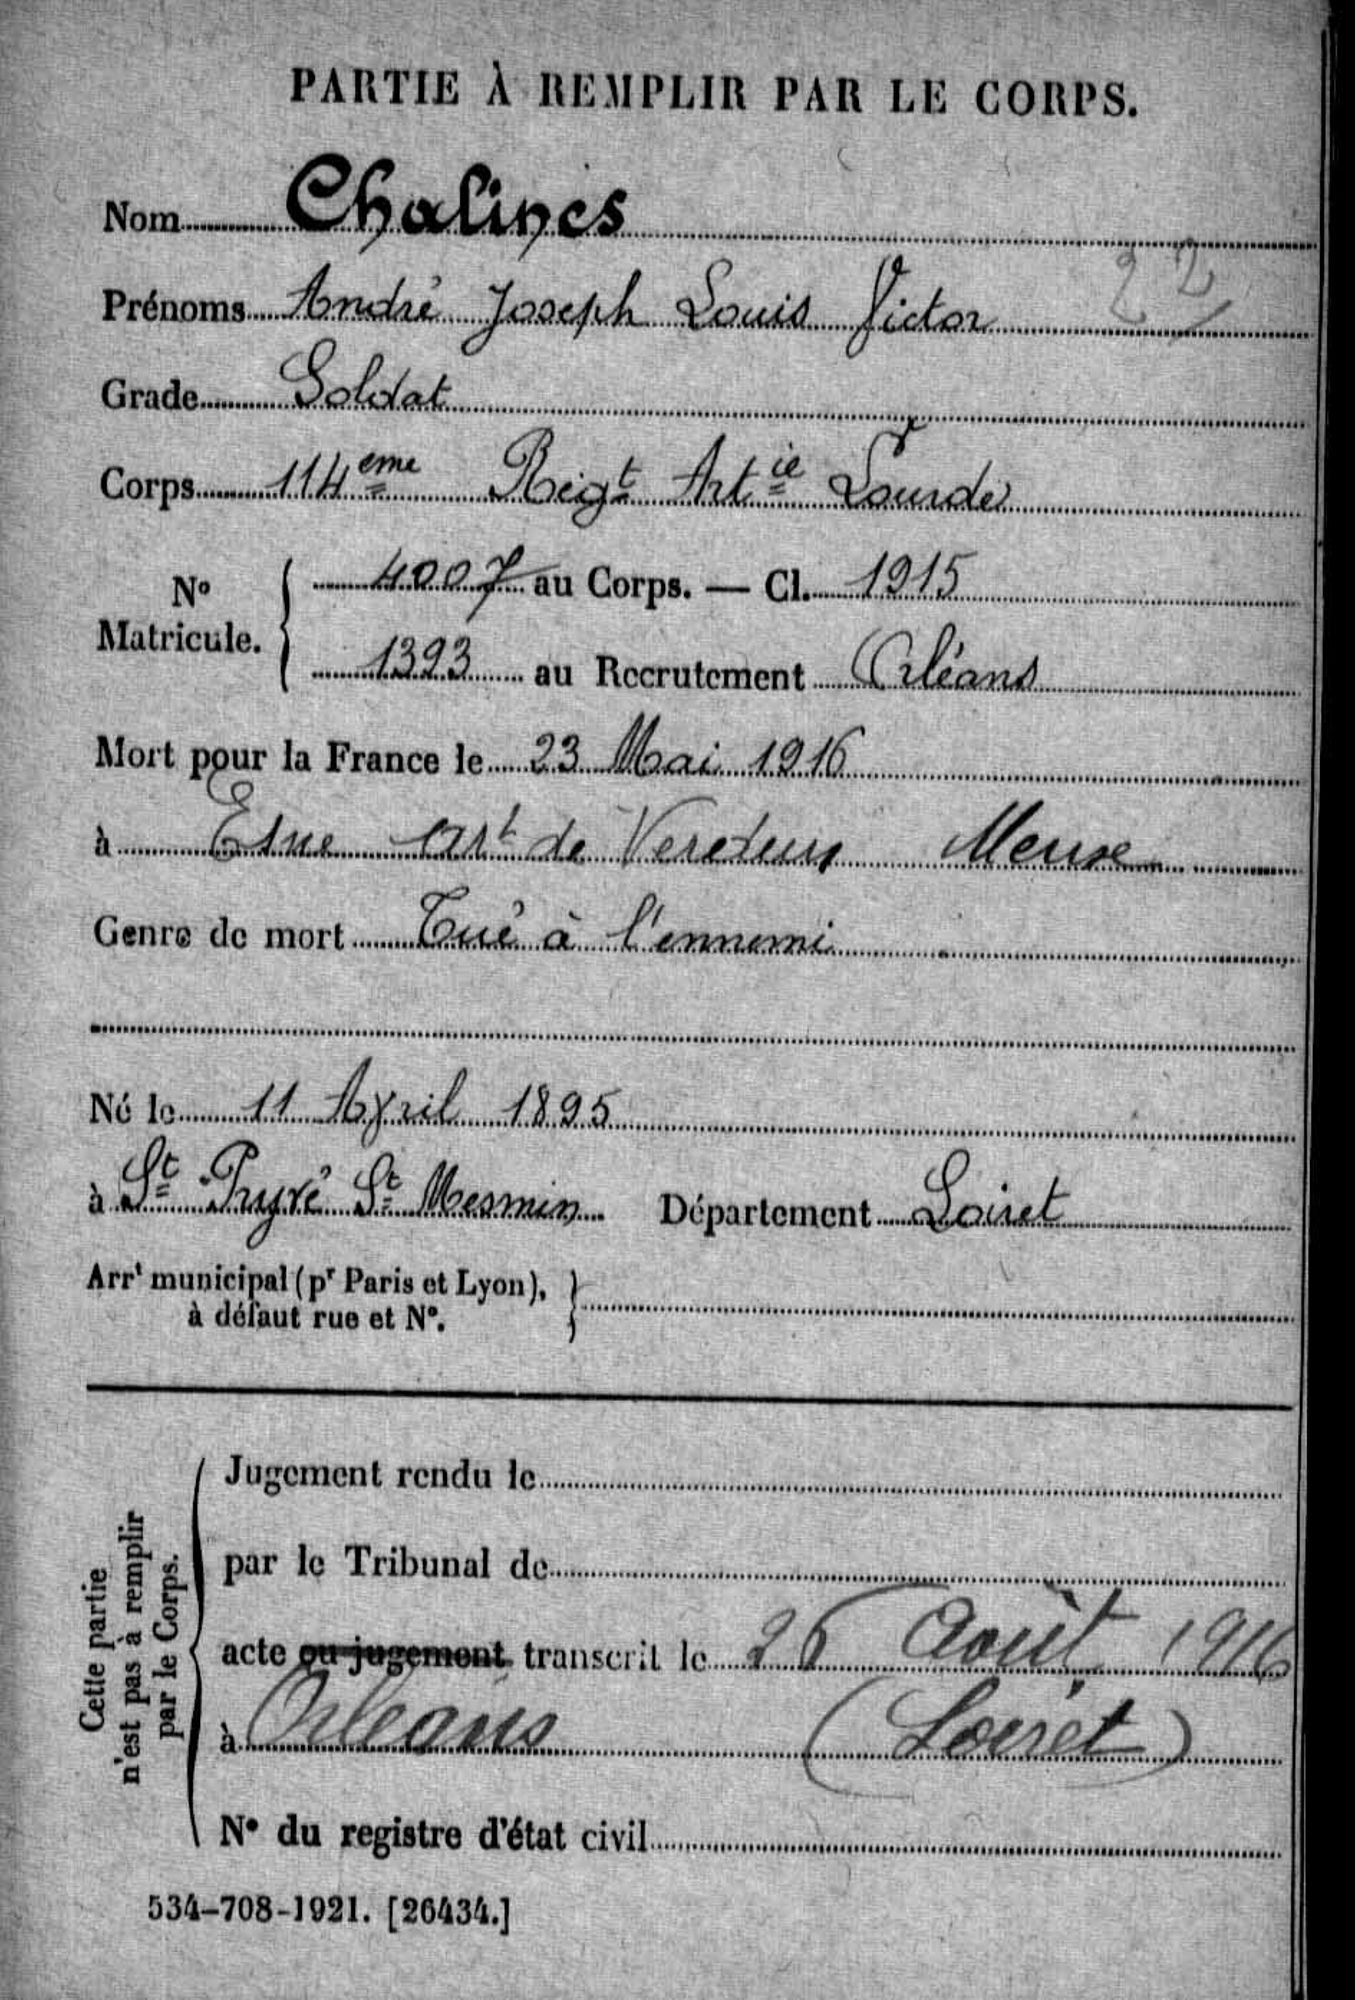 PARTIE À REMPLIR PAR LE CORPS.
Nom Chalines
22
Prénoms André Joseph Louis Victor
Grade Soldat
Corps 114eme Régt Artie Lourde
No Matricule. { 4007 au Corps. — Cl. 1915
1393 au Recrutement Orléans
Mort pour la France le 23 Mai 1916
à Esne arrt de Verdun Meuse
Genre de mort Tué à l'ennemi
Né le 11 Avril 1895
à St Pryvé St Mesmin Département Loiret
Arrt municipal (pr Paris et Lyon), }
à défaut rue et No.
Cette partie
n'est pas à remplir
par le Corps.
Jugement rendu le
par le Tribunal de
acte ou jugement transcrit le Août 1916
à Orléans (Loiret)
No du registre d'état civil
534-708-1921. [26434.]